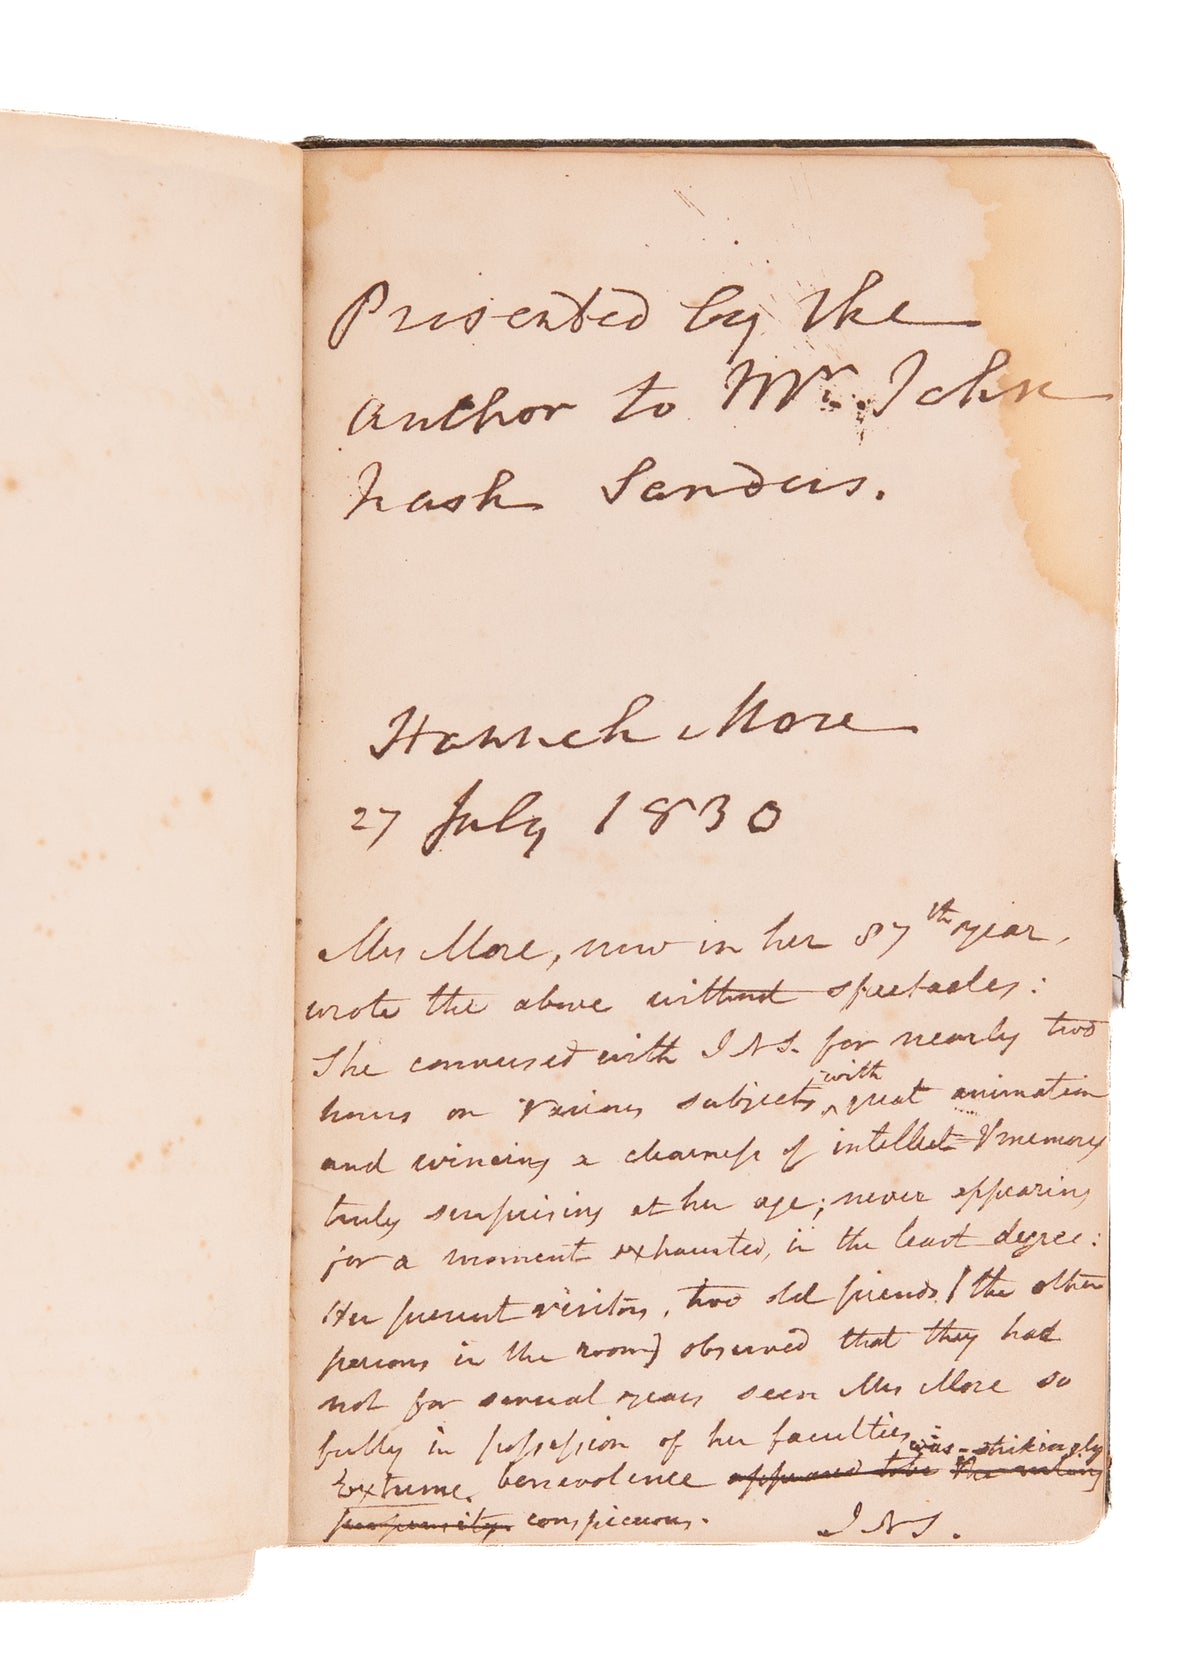 Presented by the
author to Mr. John
Nash Sanders.
Hannah More
27 July 1830
Mrs More, now in her 87th year,
wrote the above without spectacles:
She conversed with J N S. for nearly two
hours on various subjects with great animation
and evincing a clearness of intellect & memory
truly surprising at her age; never appearing
for a moment exhausted, in the least degree:
Her present visitors, two old friends (the other
persons in the room) observed that they had
not for several years seen Mrs More so
fully in possession of her faculties
was strikingly
Extreme benevolence appeared to be the ruling
propensity. conspicuous. J N S.